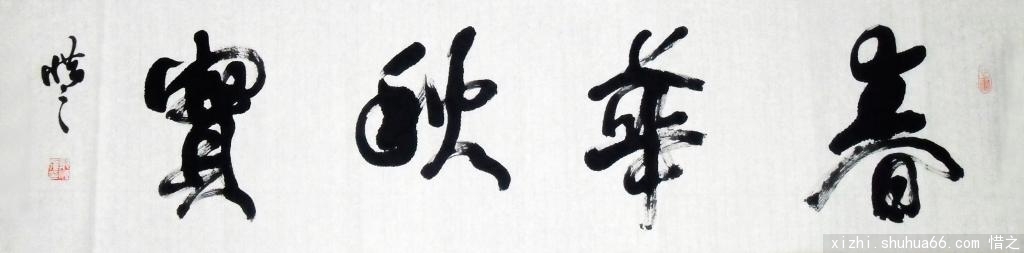 春華秋實
惜之
xizhi.shuhua66.com 惜之